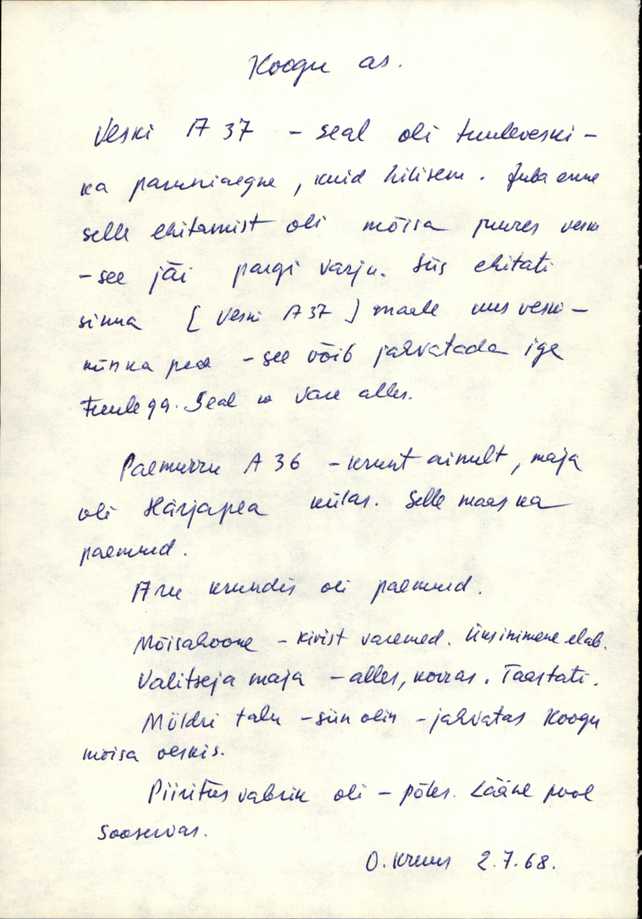 Koogu as.
Veski A 37 – seal oli tuuleveski –
ka paruniaegne, kuid hilisem. Juba enne
selle ehitamist oli mõisa juures veski
– see jäi pargi varju. Siis ehitati
sinna [Veski A 37] maale uus veski –
künka peale – see võib jahvatada iga
tuulega. Seal on vare alles.
Paemurru A 36 – krunt ainult, maja
oli Härjapea külas. Selle maas ka
paemurd.
Aru krundis oli paemurd.
Mõisahoone – kivist varemed. Üks inimene elab.
Valitseja maja – alles, korras. Taastati.
Möldri talu – siin olin – jahvatas Koogu
mõisa veskis.
Piiritus vabrik oli – põles. Lääne pool
sooservas.
O. 2.7.68.